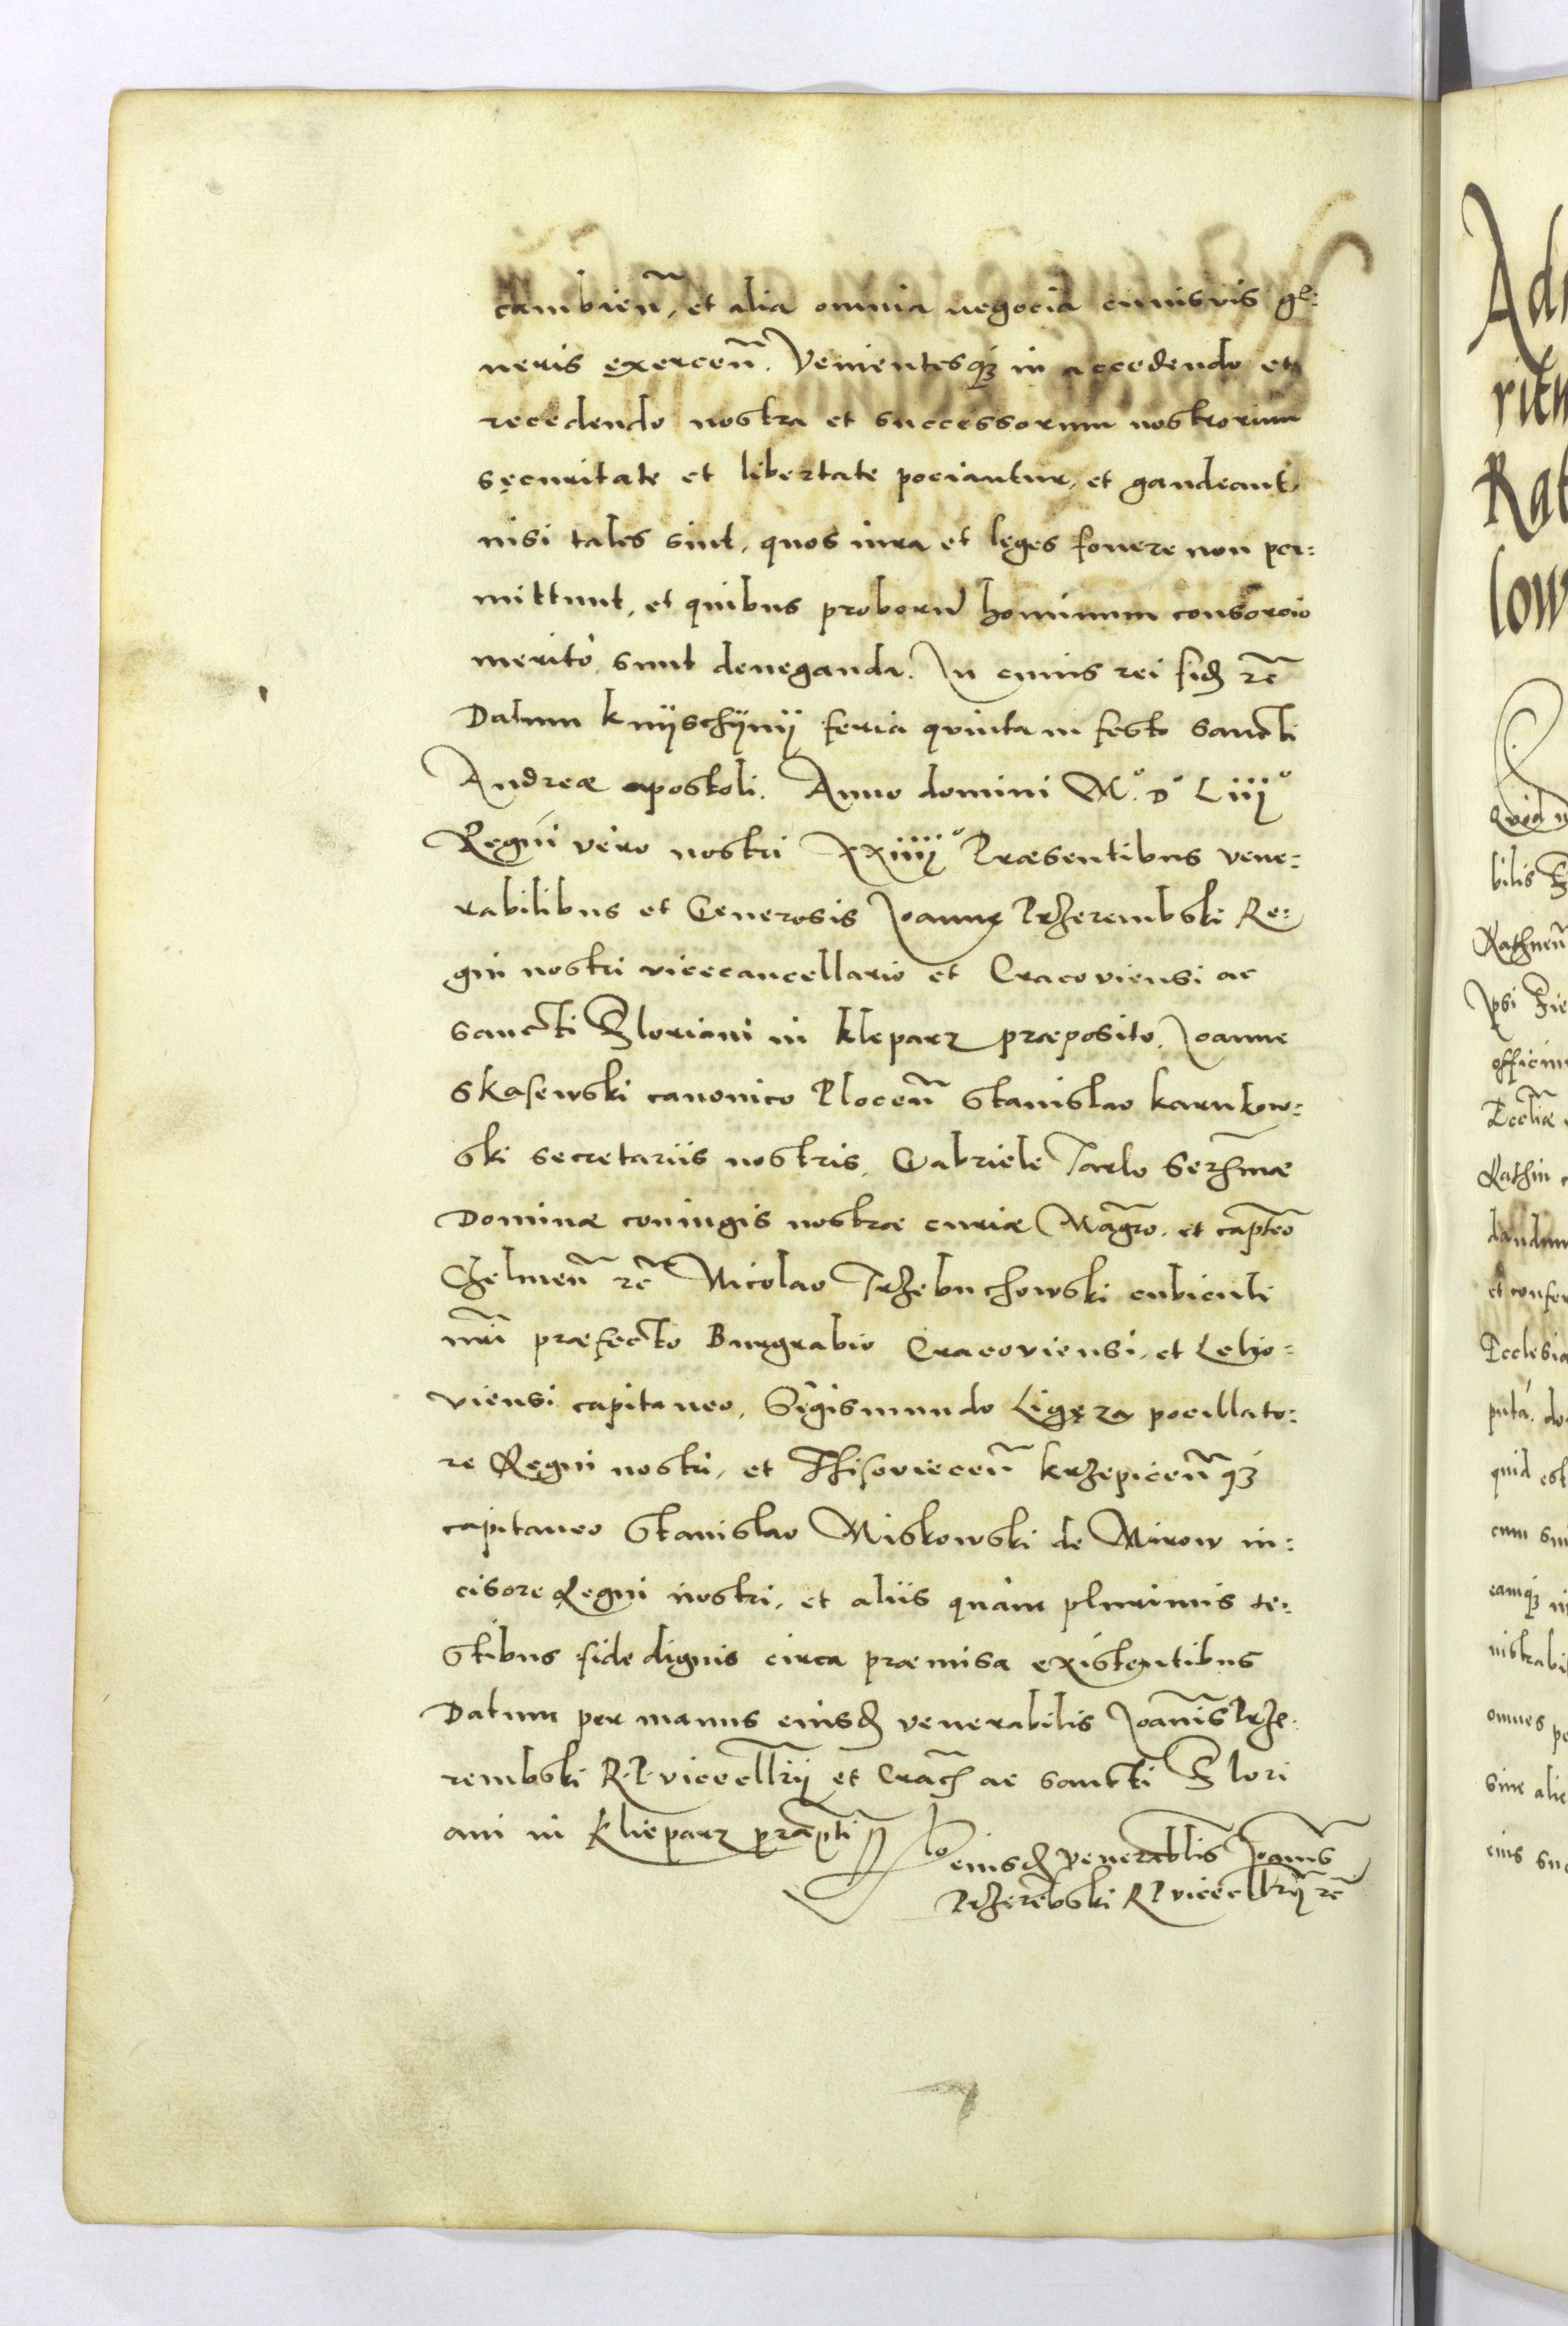 cambieñ, et alia omnia negocia cuiusvis ge:
neris exerceñ. Venientesq3 in accedendo et
recedendo nostra et successorum nostrorum
sęcuritate et libertate pociantur, et gaudeant
nisi tales sint, quos iura et lęges fouere non per:
mittunt, et quibus proborũ hominum consorcio
meritò sunt deneganda. In cuius rei fid rc̃
Datum knÿschÿnÿ feria qvinta in festo sancti
Andreæ apostoli. Anno domini M.° D° Liiij°
Regni vero nostri xxiiiij° Præsentibus vene:
rabilibus et Generosis Joannę Przerembski Re:
gni nostri vicecancellario et Cracoviensi ac
sancti Floriani in kleparz præposito, Joanne
Skasewski canonico Ploceñ Stanislao karnkow:
ski secretariis nostris, Gabriele Tarlo Serh̃mæ
Dominæ coniugis nostræ curiæ Mag̃ro. et capt̃eo
Chelmeñ rc̃ Nicolao Trzebuchowski cubiculi
nr̃i præfecto Burgrabio Cracoviensi, et Lelio:
viensi capitaneo, Sigismundo Ligęza pocillato:
re Regni nostri, et Thisovieceñ krzepiceñ q3
capitaneo Stanislao Miskowski de Mirow in:
cisore Regni nostri, et aliis quàm plurimis te:
stibus fide dignis circa præmisa existentibus
Datum per manus eiusd venerabilis Joañis Prze:
rembski R. P. vicecllr̃ij et Crac̃h ac sancti Flori
ani in Klieparz præp̃ti
Rlo eiusd venerablis Joannis
Przerẽbski R P vicecllr̃ij rc̃
Rat
low
Qvid
bilis
officium
Rathin
et confer
Ecclesia
quid est
omnes pe
sine alic